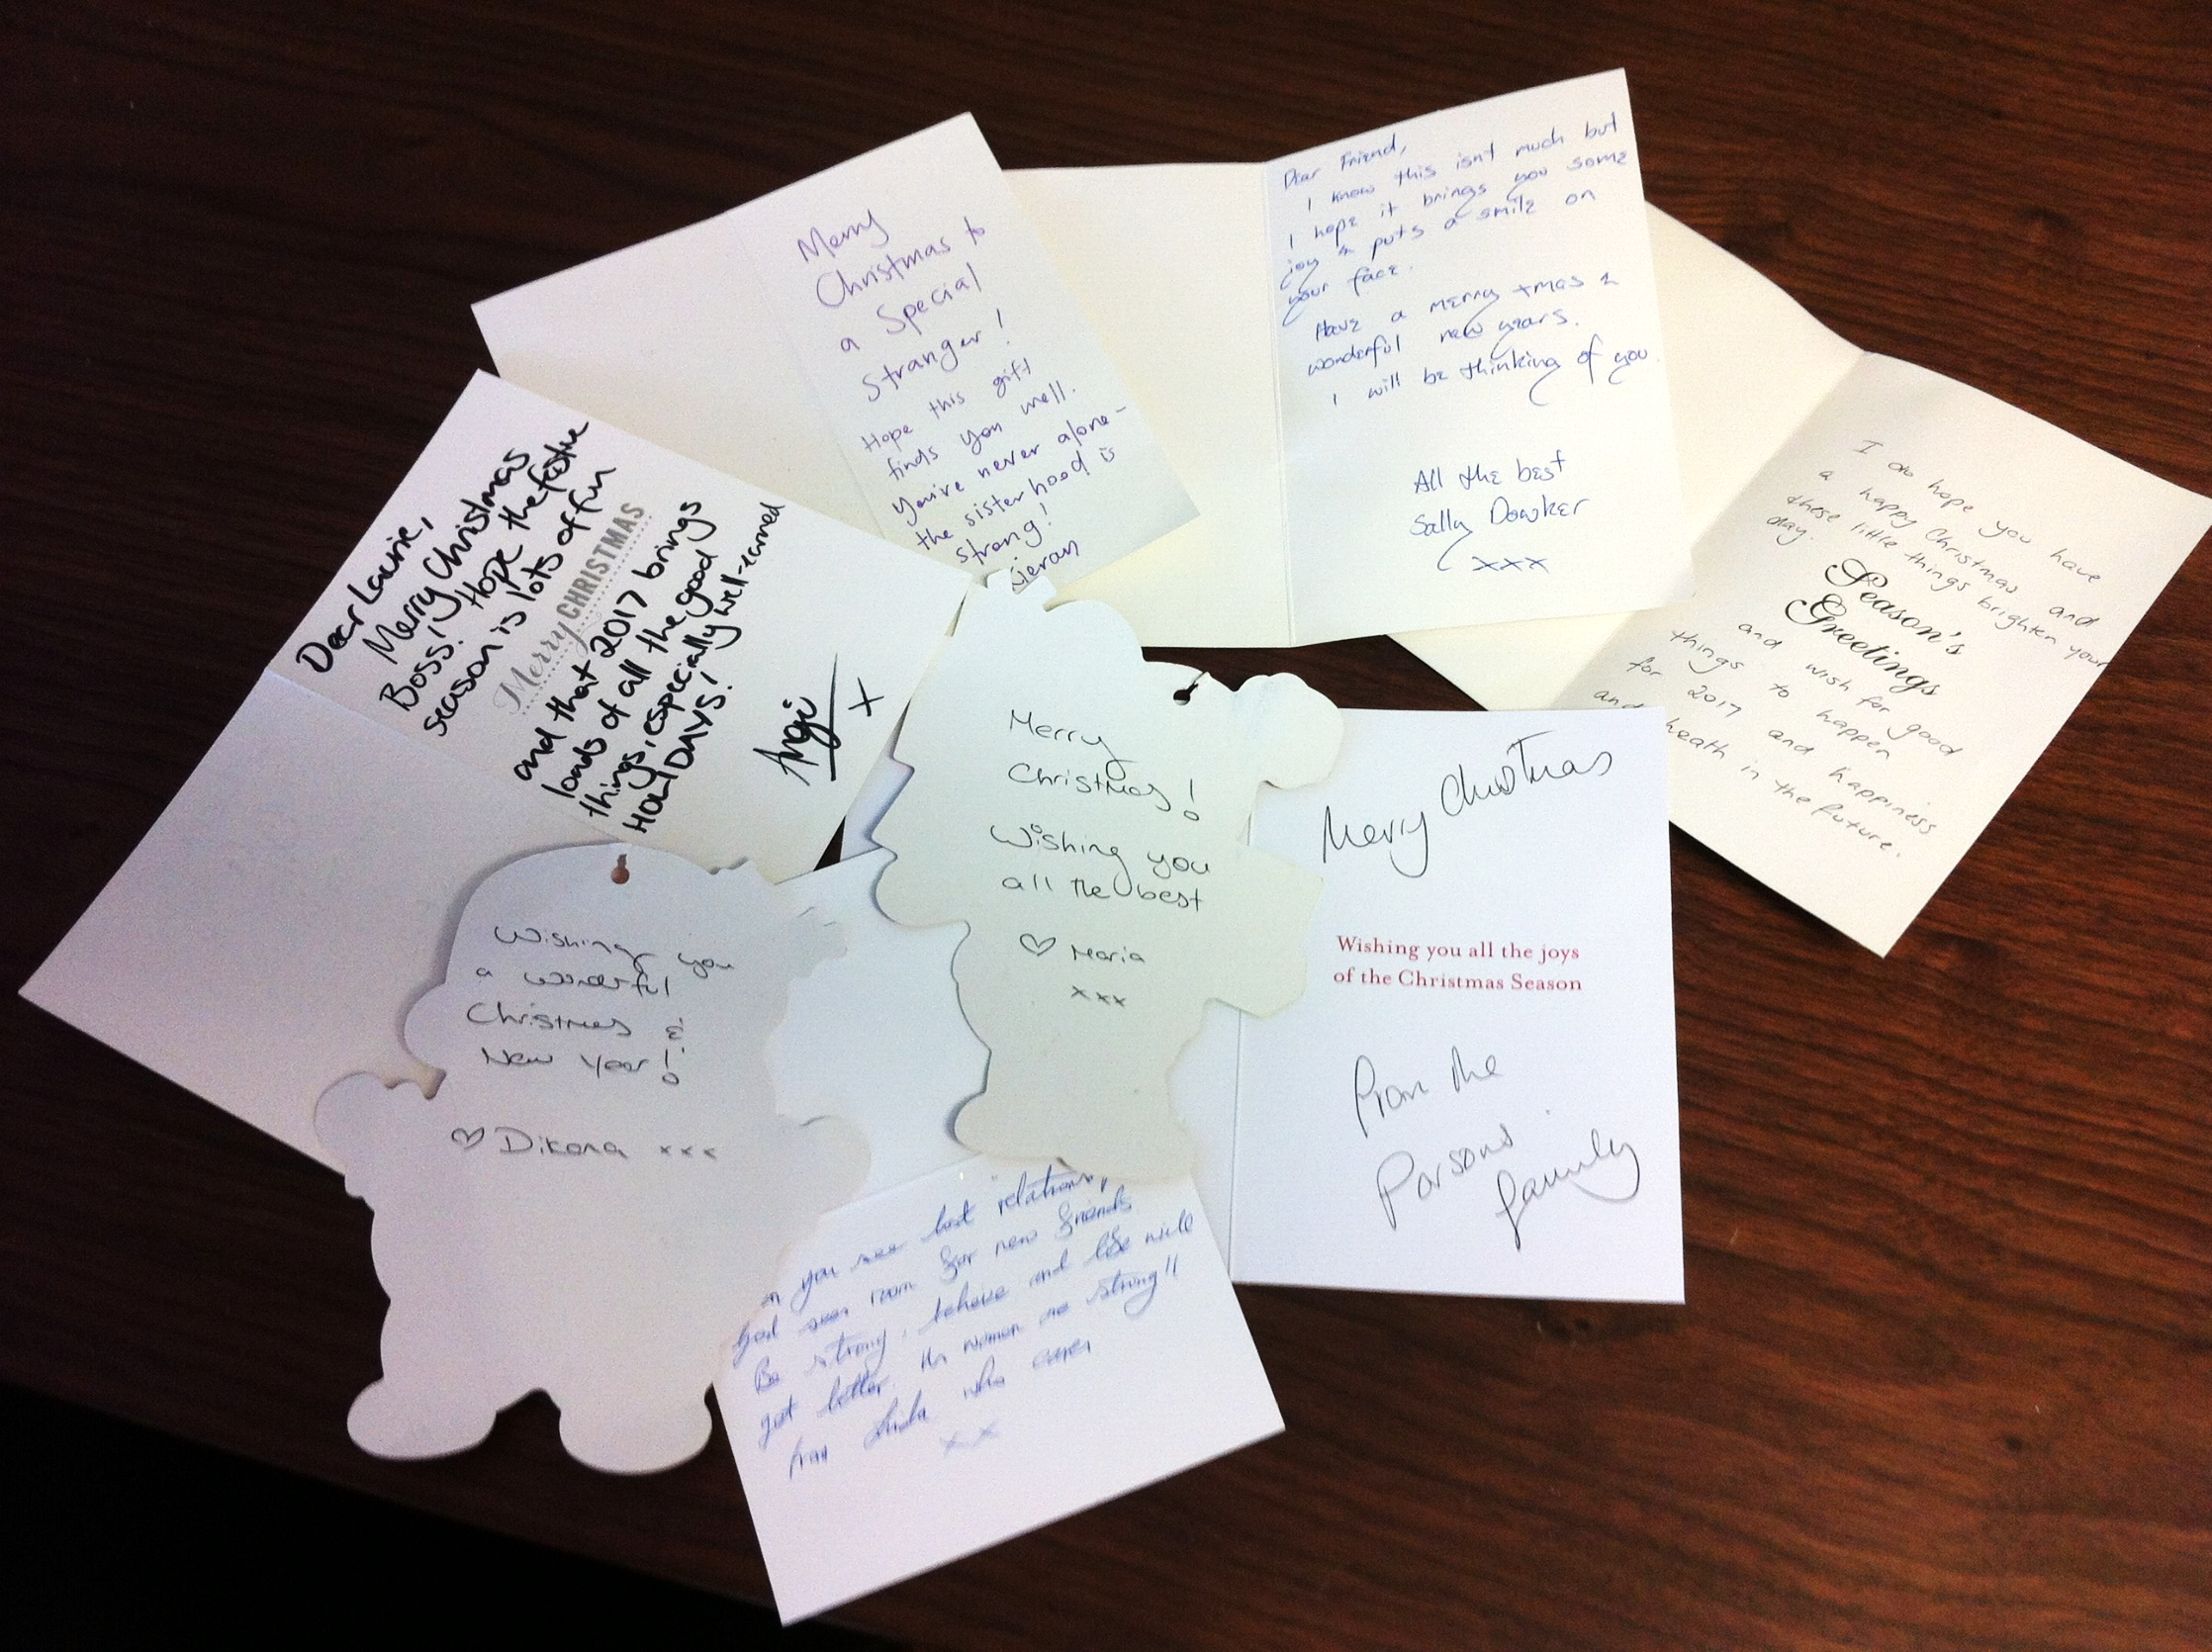 Merry
Christmas to
a Special
Stranger!
Hope this gift
finds you well.
You're never alone-
the sisterhood is
strong!
Kieran
Dear Friend,
I know this isn't much but
I hope it brings you some
joy & puts a smile on
your face.
Have a merry xmas &
wonderful new years.
I will be thinking of you.
All the best
Sally Dowker
xxx
I do hope you have
a happy Christmas and
these little things brighten your
day.
Season's
Greetings
and wish for good
things to happen
for 2017 and happiness
and heath in the future.
Dear Laurie,
Merry Christmas
Boss! Hope the festive
season is lots of fun
Merry CHRISTMAS
and that 2017 brings
loads of all the good
things, especially well-earned
HOLIDAYS!
Angi
x
Merry
Christmas!
Wishing you
all the best
♡ Maria
xxx
Merry Christmas
Wishing you all the joys
of the Christmas Season
From the
Parsons
family
Wishing you
a wonderful
Christmas &
New Year!
♡ Dikana xxx
you lost "relations
room for new friends
Be strong, believe and life will
get better. We women are strong!!
from who cares
xx